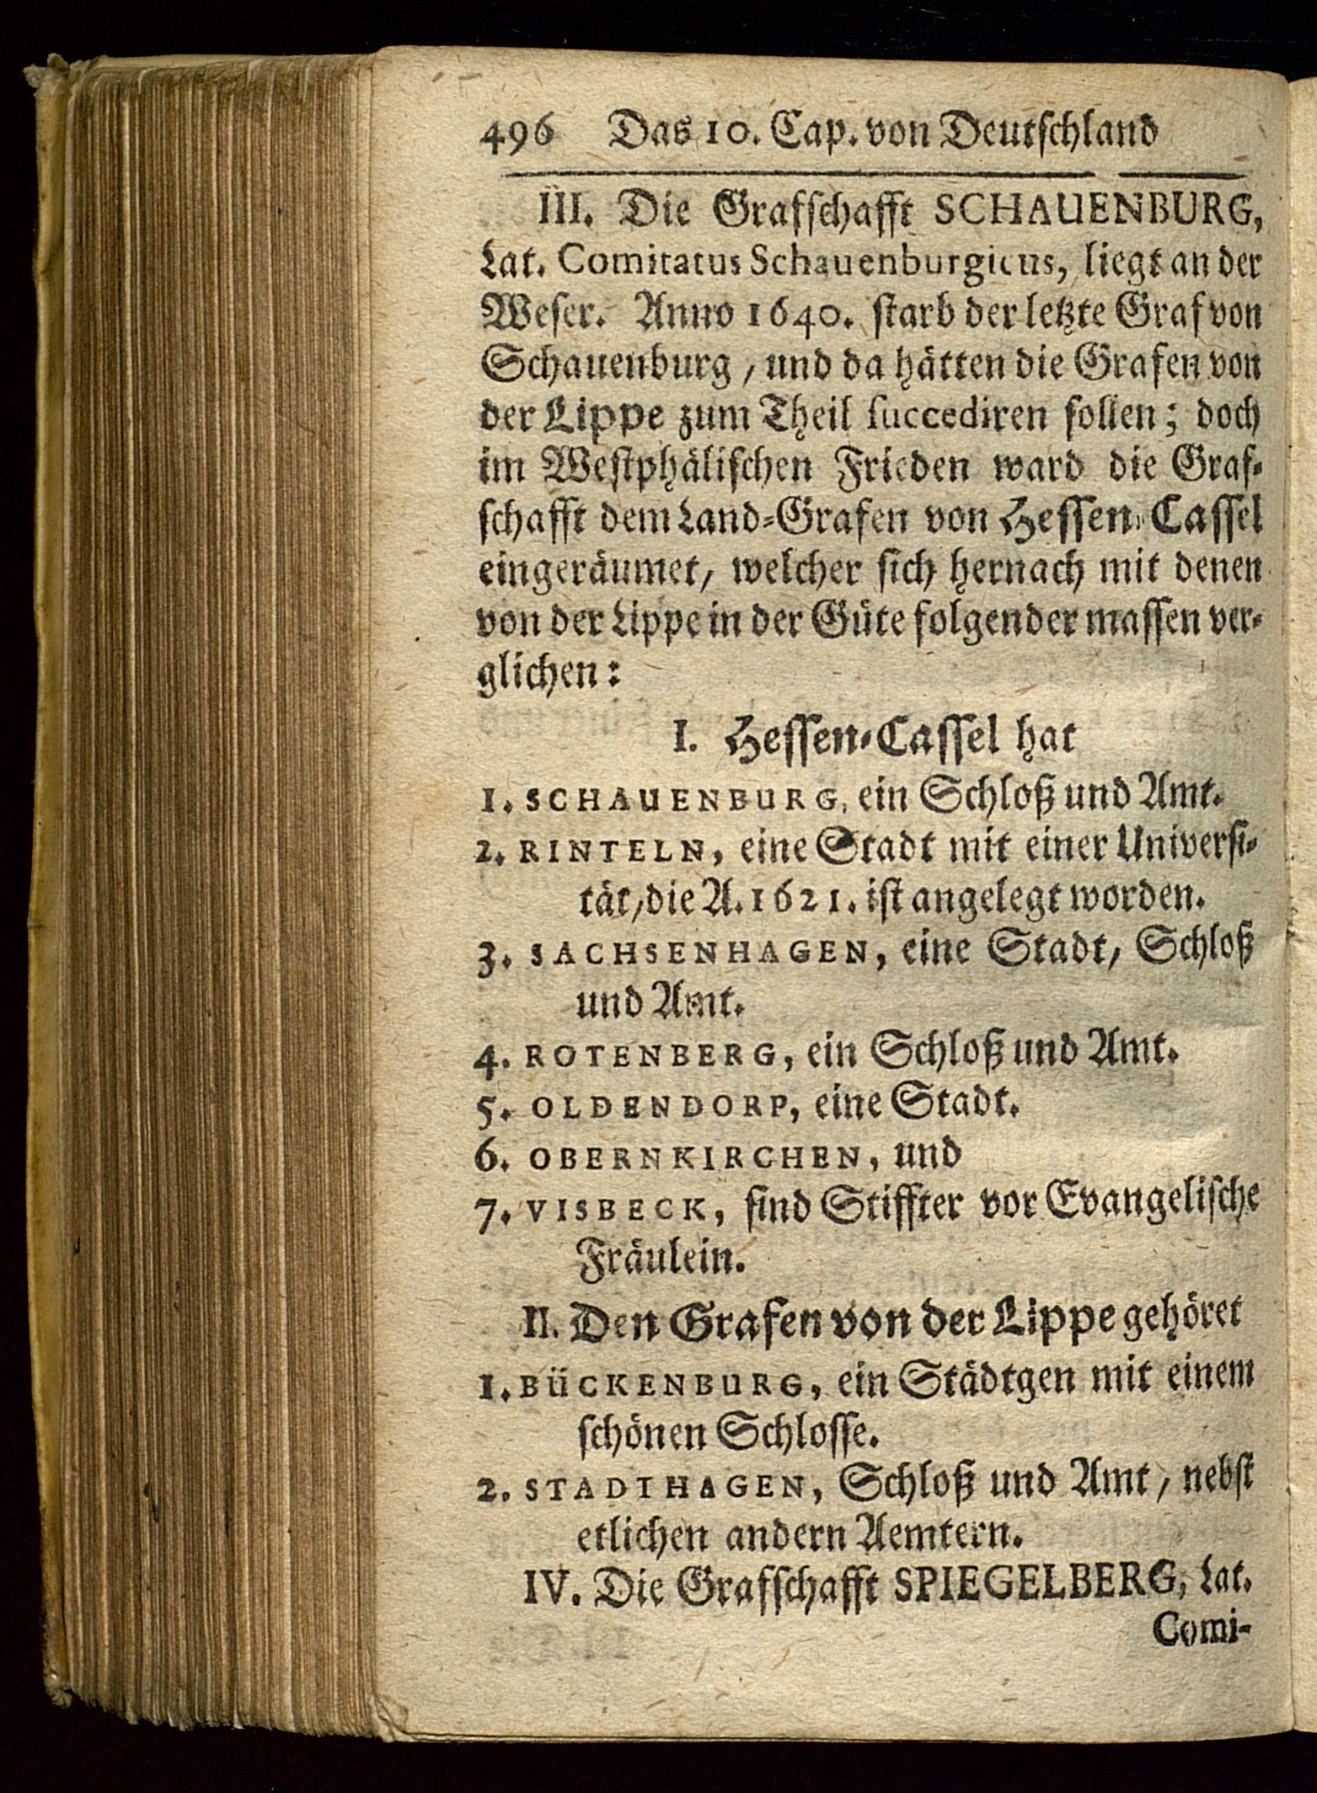 496 Das 10. Cap. von Deutschland
III. Die Grafschafft SCHAUENBURG,
Lat. Comitatus Schauenburgicus, liegt an der
Weser. Anno 1640. starb der letzte Graf von
Schauenburg, und da hätten die Grafen von
der Lippe zum Theil succediren sollen; doch
im Westphälischen Frieden ward die Graf-
schafft dem Land-Grafen von Hessen-Cassel
eingeräumet, welcher sich hernach mit denen
von der Lippe in der Güte folgender massen ver-
glichen:
I. Hessen-Cassel hat
1. SCHAUENBURG, ein Schloß und Amt.
2. RINTELN, eine Stadt mit einer Universi-
tät, die A. 1621. ist angelegt worden.
3. SACHSENHAGEN, eine Stadt, Schloß
und Amt.
4. ROTENBERG, ein Schloß und Amt.
5. OLDENDORP, eine Stadt.
6. OBERNKIRCHEN, und
7. VISBECK, sind Stiffter vor Evangelische
Fräulein.
II. Den Grafen von der Lippe gehöret
1. BÜCKENBURG, ein Städtgen mit einem
schönen Schlosse.
2. STADTHAGEN, Schloß und Amt, nebst
etlichen andern Aemtern.
IV. Die Grafschafft SPIEGELBERG, Lat.
Comi-